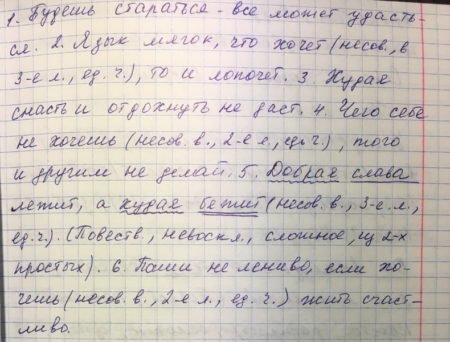 1. Будешь стараться - все может удасть-
ся. 2. Язык мягок, что хочет (несов., в
3-е л., ед. ч.), то и лопочет. 3. Худая
снасть и отдохнуть не даст. 4. Чего себе
не хочешь (несов. в., 2-е л., ед. ч.), того
и другим не делай. 5. Добрая слава
лежит, а худая бежит (несов. в., 3-е л.,
ед. ч.). (Повеств., невоскл., сложное, из 2-х
простых). 6. Паши не лениво, если хо-
чешь (несов. в., 2-е л., ед. ч.) жить счаст-
ливо.